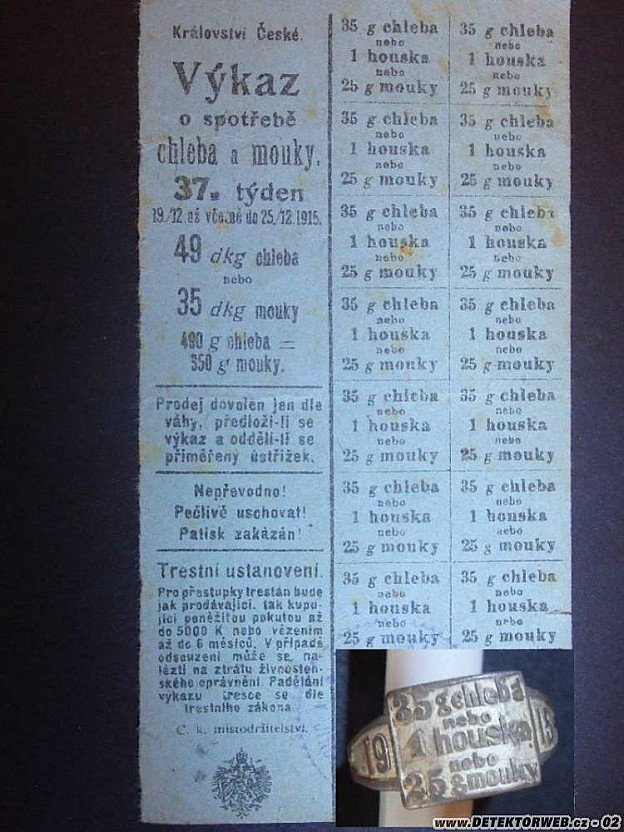 Království České.
Výkaz
o spotřebě
chleba a mouky.
37. týden
19./12. až včetně do 25./12. 1915.
49 dkg chleba
nebo
35 dkg mouky
490 g chleba =
350 g mouky.
Prodej dovolen jen dle
váhy, předloží-li se
výkaz a oddělí-li se
přiměřený ústřižek.
Nepřevodno!
Pečlivě uschovat!
Patisk zakázán!
Trestní ustanovení.
Pro přestupky trestán bude
jak prodávající, tak kupu-
jící peněžitou pokutou až
do 5000 K nebo vězením
až do 6 měsíců. V případě
odsouzení může se na-
lézti na ztrátu živnosten-
ského oprávnění. Padělání
výkazu tresce se dle
trestního zákona
C. k. místodržitelství.
35 g chleba
nebo
1 houska
nebo
25 g mouky
35 g chleba
nebo
1 houska
nebo
25 g mouky
35 g chleba
nebo
1 houska
nebo
25 g mouky
35 g chleba
nebo
1 houska
nebo
25 g mouky
35 g chleba
nebo
1 houska
nebo
25 g mouky
35 g chleba
nebo
1 houska
nebo
25 g mouky
35 g chleba
nebo
1 houska
nebo
25 g mouky
35 g chleba
nebo
1 houska
nebo
25 g mouky
35 g chleba
nebo
1 houska
nebo
25 g mouky
35 g chleba
nebo
1 houska
nebo
25 g mouky
35 g chleba
nebo
1 houska
nebo
25 g mouky
35 g chleba
nebo
1 houska
nebo
25 g mouky
35 g chleba
nebo
1 houska
nebo
25 g mouky
35 g chleba
nebo
1 houska
nebo
25 g mouky
19
35 g chleba
nebo
1 houska
nebo
25 g mouky
15
WWW.DETEKTORWEB.cz - 02